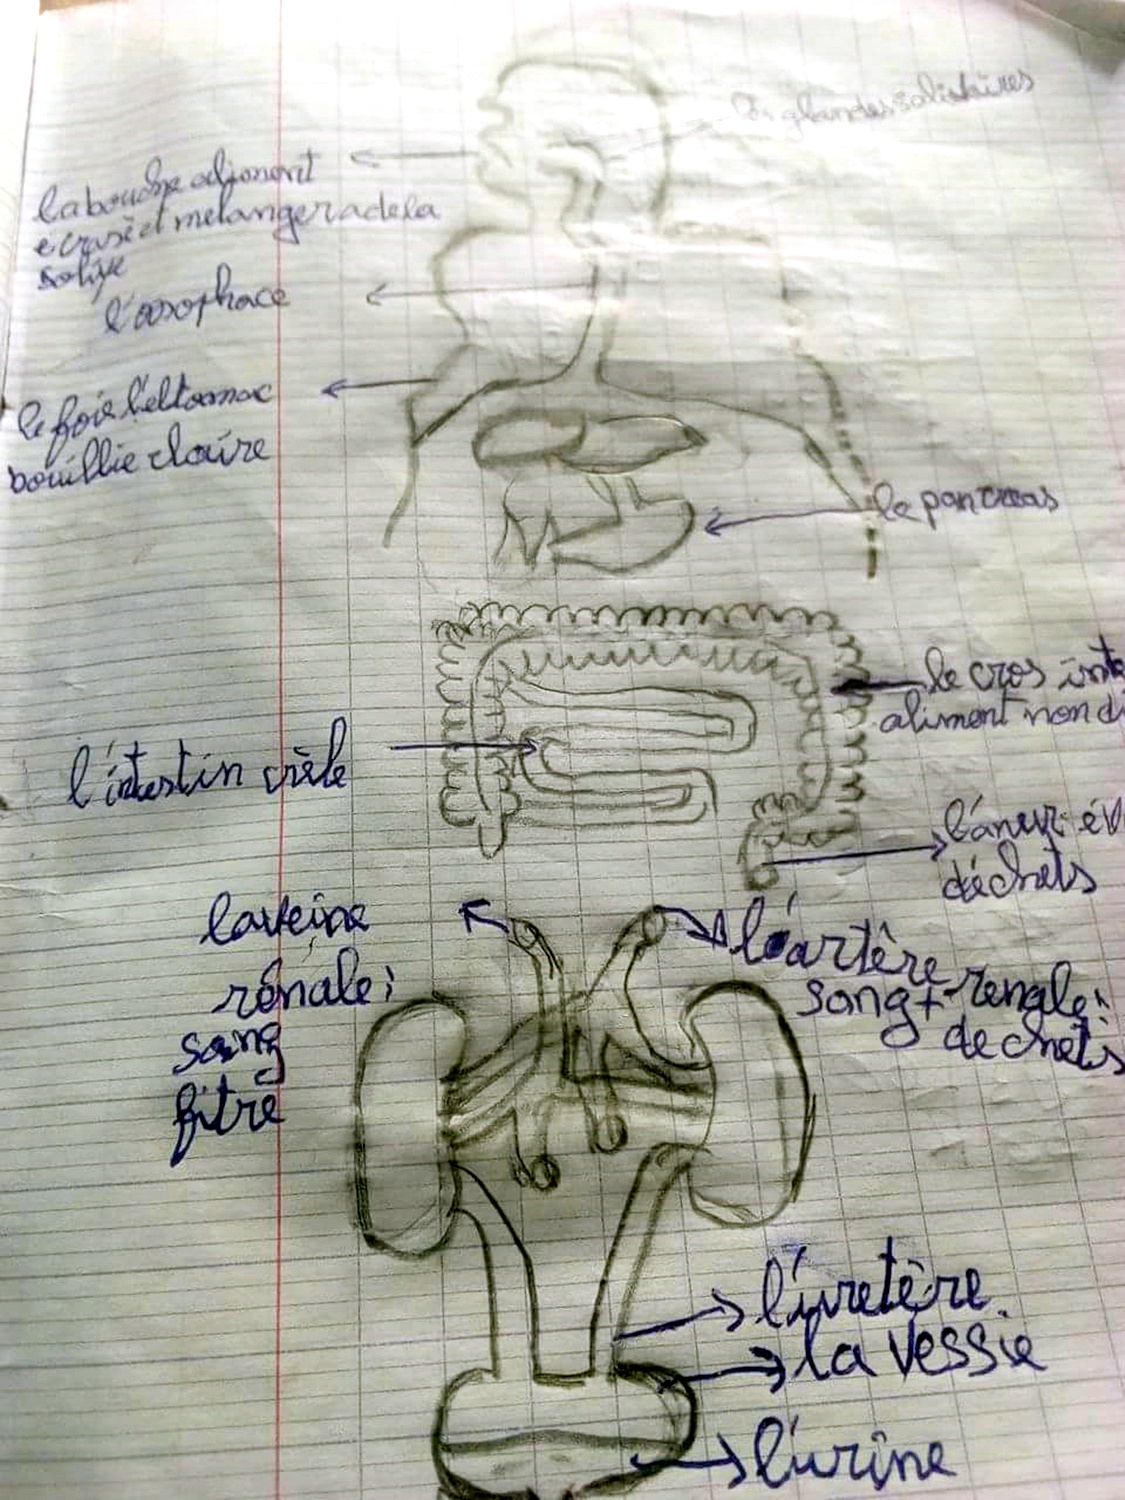 les glandes salishires
la bouche alioment
ecrasé et melanger a dela
salive
l'osophace
le foie l'eltomac
bouillie claire
le pancreas
le cros inte
aliment non di
l'intestin crèle
l'anus év
déchets
la veine
rénale:
sang
fitré
l'artère renale:
sang +
dechets
l'uretère
la vessie
l'urine